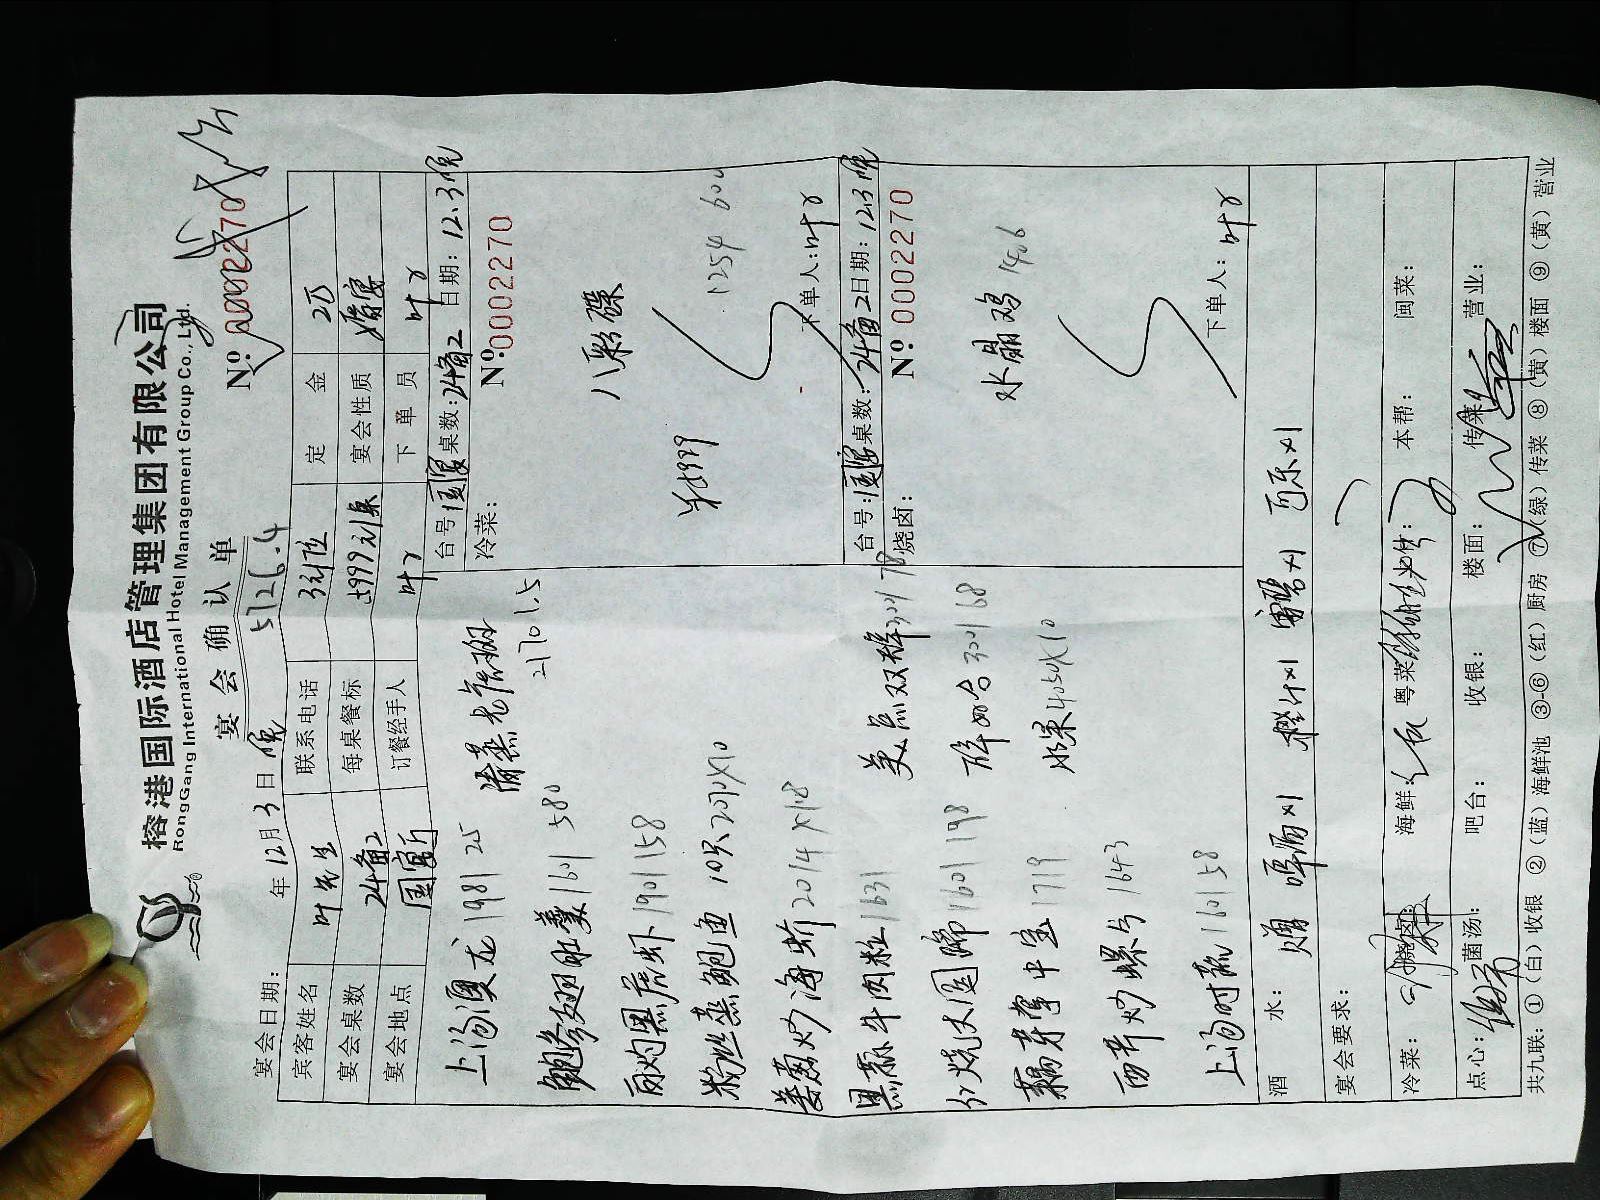 榕港国际酒店管理集团有限公司
RongGang International Hotel Management Group Co., Ltd.
宴会确认单
5126.4
№ 0002270
宴会日期： 年 12月 3日 晚
宾客姓名 叶先生 联系电话 定金 2万
宴会桌数 24备2 每桌餐标 5999元/桌 宴会性质 婚宴
宴会地点 国宴厅 订餐经手人 叶 下单员 叶
上汤澳龙 1981 25
清蒸老虎斑
2170 1.5
鲍参翅肚羹 1601 580
白灼黑虎虾 1901 58
粉丝蒸鲍鱼 10只 2070X10
姜葱炒海蚧 2014 X1.8
黑椒牛肉粒 1631
美点双辉 78
红烧大圆蹄 1601 198
168
藕芽掌中宝 1719
水果 4054X10
西芹炒螺片 1643
上汤时蔬 1601 58
台号：国宴 桌数：24备2 日期：12.3晚
冷菜：
№ 0002270
八彩碟
1254 600
半5999
下单人：叶
台号：国宴 桌数：24备2 日期：12.3晚
烧卤：
№ 0002270
水晶鸡 1406
下单人：叶
酒水： 赠 啤酒X1 橙汁X1 雪碧X1 可乐X1
宴会要求：
冷菜： 烧卤： 海鲜： 粤菜： 本帮： 闽菜：
点心： 菌汤： 吧台： 收银： 楼面： 传菜： 营业：
共九联：①（白）收银 ②（蓝）海鲜池 ③-⑥（红）厨房 ⑦（绿）传菜 ⑧（黄）楼面 ⑨（黄）营业